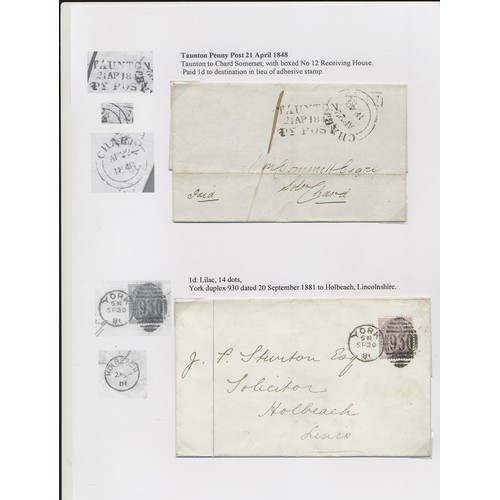 Taunton Penny Post 21 April 1848
Taunton to Chard Somerset, with boxed No 12 Receiving House.
Paid 1d to destination in lieu of adhesive stamp.
TAUNTON
21AP18
PY POST
CHARD
AP 22
1848
TAUNTON
21AP18
PY POST
CHARD
AP 22
1848
Esqre
Solr
Chard
Paid
1d. Lilac, 14 dots,
York duplex 930 dated 20 September 1881 to Holbeach, Lincolnshire.
YORK
SP20
81
930
HOLBEACH
81
YORK
SP20
81
930
J. P. Sturton Esq
Solicitor
Holbeach
Lincs